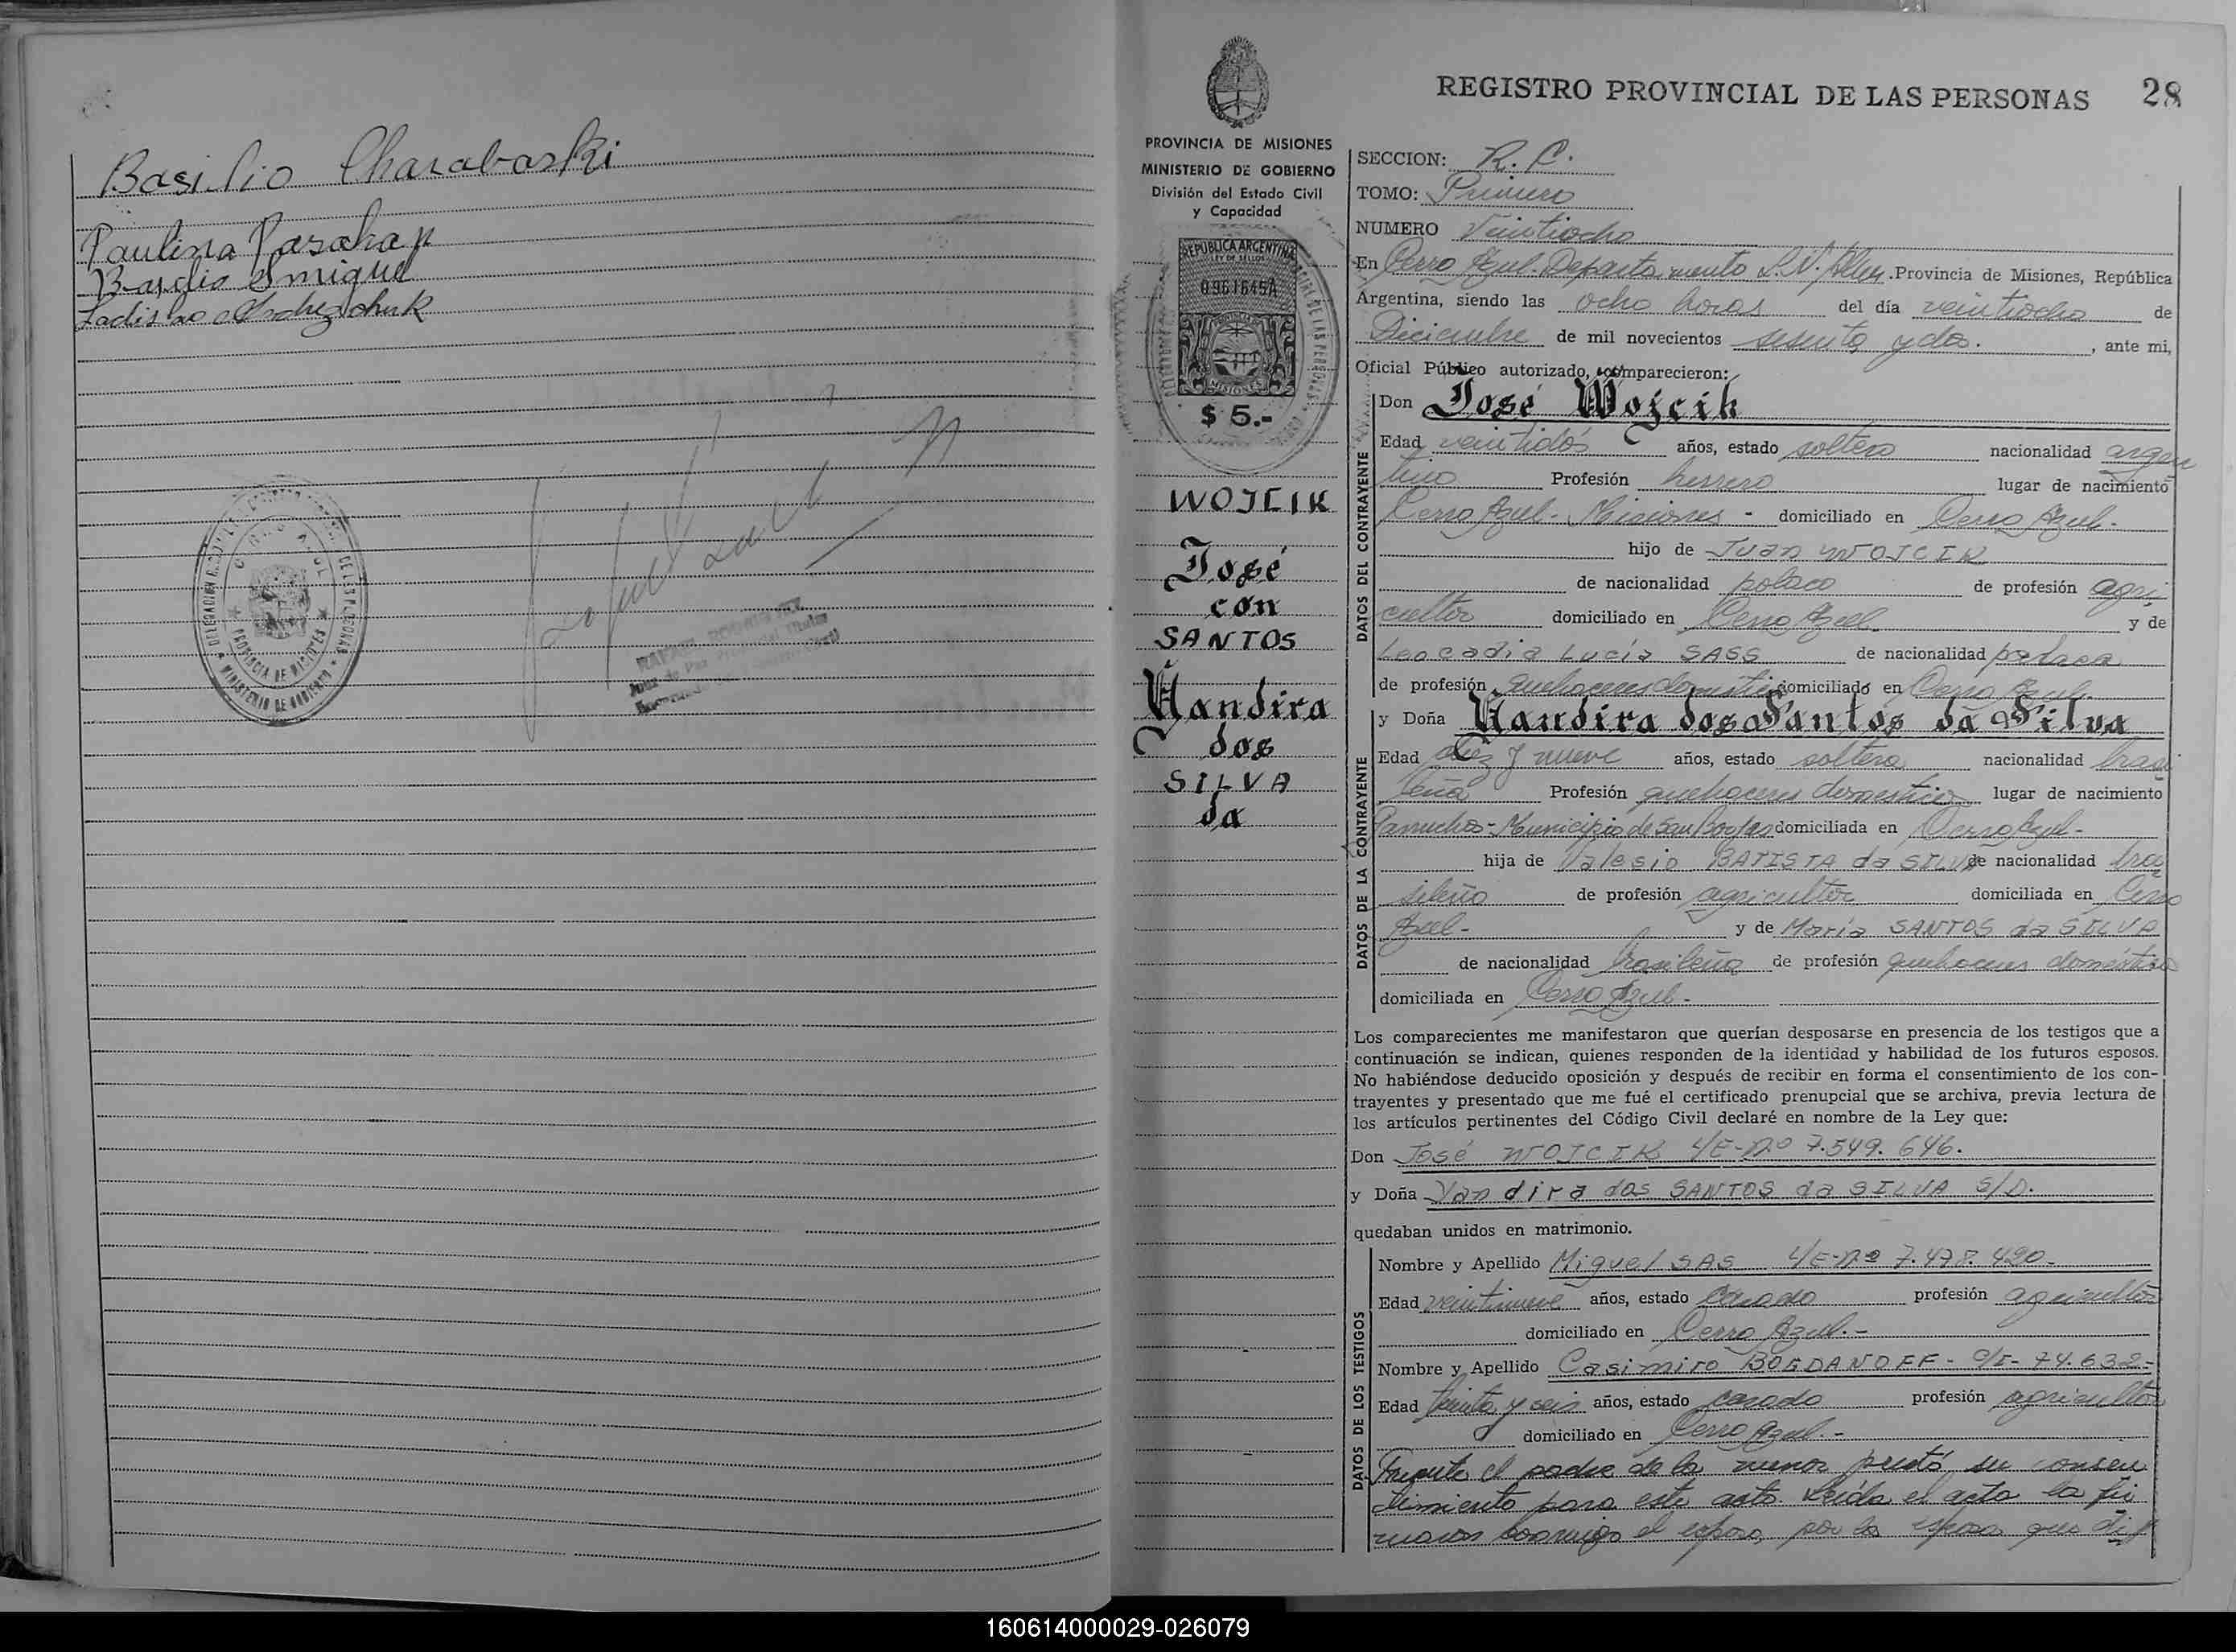 Basilio Charabaski
Paulina
Basilio
Ladislao
CERRO AZUL
PROVINCIA DE MISIONES
MINISTERIO DE GOBIERNO
Juez de Paz Titular
REGISTRO PROVINCIAL DE LAS PERSONAS 28
PROVINCIA DE MISIONES
MINISTERIO DE GOBIERNO
División del Estado Civil
y Capacidad
REPUBLICA ARGENTINA
LEY DE SELLOS
0961645A
MISIONES
$ 5.-
WOJCIK
José
con
SANTOS
Yandira
dos
SILVA
da
SECCION: R. C.
TOMO: Primero
NUMERO Veintiocho
En Cerro Azul. Departamento L. N. Alem. Provincia de Misiones, República
Argentina, siendo las ocho horas del día veintiocho de
Diciembre de mil novecientos sesenta y dos. , ante mi,
Oficial Público autorizado, comparecieron:
DATOS DEL CONTRAYENTE
Don José Wojcik
Edad veintidós años, estado soltero nacionalidad argen
tino Profesión herrero lugar de nacimiento
Cerro Azul - Misiones - domiciliado en Cerro Azul.-
hijo de Juan WOJCIK
de nacionalidad polaco de profesión agri
cultor domiciliado en Cerro Azul y de
Leocadia Lucía SASS de nacionalidad polaca
de profesión quehaceres domésticos domiciliado en Cerro Azul.
DATOS DE LA CONTRAYENTE
y Doña Yandira dos Santos da Silva
Edad diez y nueve años, estado soltera nacionalidad brasi
leña Profesión quehaceres domésticos lugar de nacimiento
Municipio de San Borjas domiciliada en Cerro Azul -
hija de Valesio BATISTA da SILVA de nacionalidad bra
sileño de profesión agricultor domiciliada en Cerro
Azul - y de María SANTOS da SILVA
de nacionalidad brasileña de profesión quehaceres domésticos
domiciliada en Cerro Azul -
Los comparecientes me manifestaron que querían desposarse en presencia de los testigos que a
continuación se indican, quienes responden de la identidad y habilidad de los futuros esposos.
No habiéndose deducido oposición y después de recibir en forma el consentimiento de los con-
trayentes y presentado que me fué el certificado prenupcial que se archiva, previa lectura de
los artículos pertinentes del Código Civil declaré en nombre de la Ley que:
Don José WOJCIK L/E-Nº 7.549.646.
y Doña Yandira dos SANTOS da SILVA S/D.
quedaban unidos en matrimonio.
DATOS DE LOS TESTIGOS
Nombre y Apellido Miguel SAS L/E-Nº 7.478.420-
Edad veintinueve años, estado casado profesión agricultor
domiciliado en Cerro Azul.-
Nombre y Apellido Casimiro BOGDANOFF - C/I- 74.632-
Edad treinta y seis años, estado casado profesión agricultor
domiciliado en Cerro Azul.-
Presente el padre de la menor prestó su consen
timiento para este acto. Leída el acta la fir
maron conmigo el esposo, por la esposa que dijo
160614000029-026079